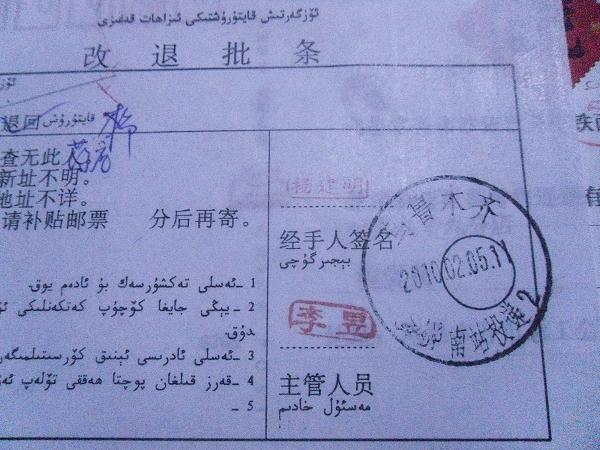 ئۆزگەرتىش قايتۇرۇشتىكى ئىزاھات قەغىزى
改 退 批 条
退回 قايتۇرۇش
查无此人
新址不明。
地址不详。
请补贴邮票 分后再寄。
1 ـ ئەسلى تەكشۈرسەك بۇ ئادەم يوق.
2 ـ يېڭى جايغا كۆچۈپ كەتكەنلىكى
3 ـ ئەسلى ئادرىسى ئېنىق
4 ـ قەرز قىلغان پوچتا ھەققى تۆلەپ
5 ـ
杨建明
经手人签名
بېجىرگۈچى
李昱
主管人员
مەسئۇل خادىم
乌鲁木齐
2010.02.05.11
南站投递2